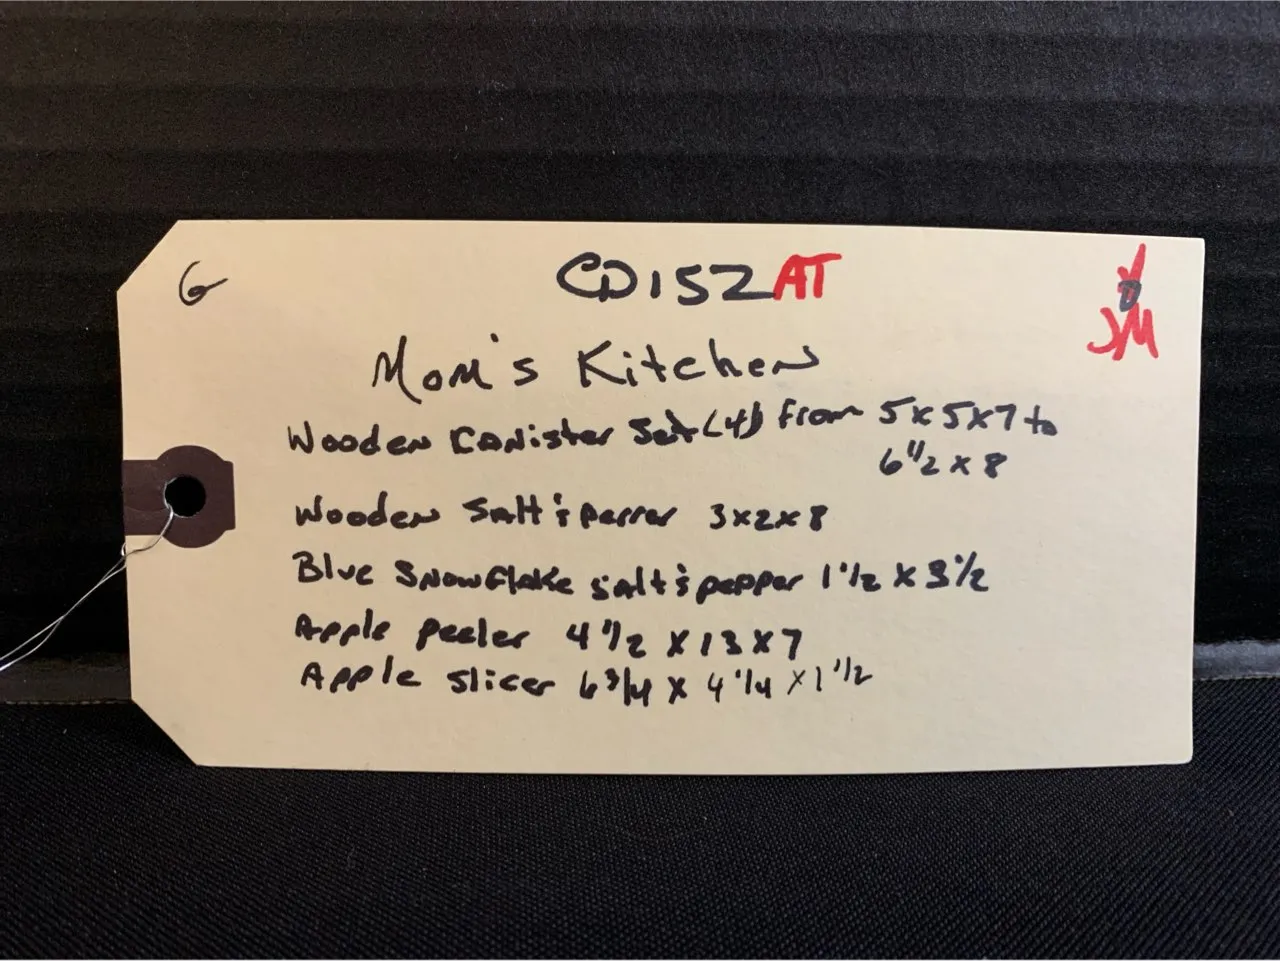 G
CD152AT
JM
Mom's Kitchen
Wooden Canister Set (4) from 5x5x7 to
6 1/2 x 8
Wooden Salt & Pepper 3x2x8
Blue Snowflake salt & pepper 1 1/2 x 3 1/2
Apple Peeler 4 1/2 x 13 x 7
Apple Slicer 6 3/4 x 4 1/4 x 1 1/2